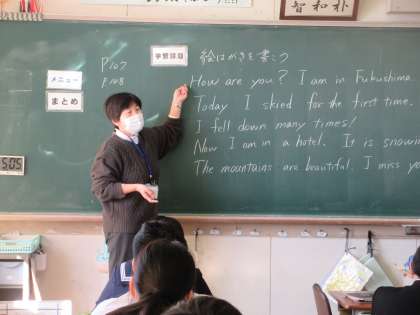 智和朴
P107
P108
学習課題
絵はがきを書こう
メニュー
まとめ
How are you? I am in Fukushima.
Today I skied for the first time.
I fell down many times!
Now I am in a hotel. It is snowin
The mountains are beautiful. I miss yo